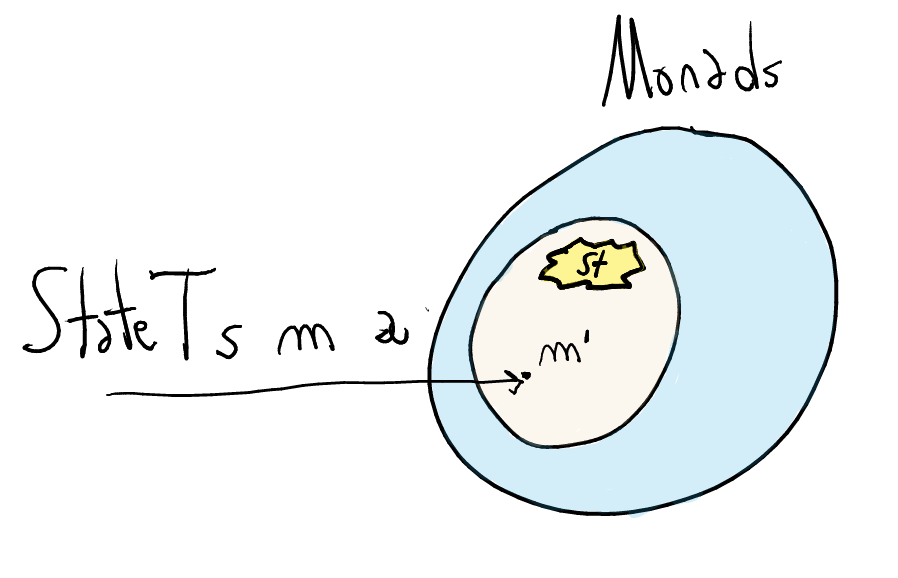 Monads
St
StateT s m a
m'